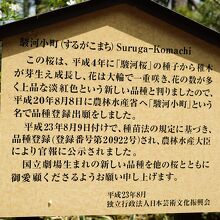 駿河小町(するがこまち) Suruga-Komachi
この桜は、平成4年に「駿河桜」の種子から稚木
が芽生え成長し、花は大輪で一重咲き、花の数が多
く上品な淡紅色という新しい品種と判りましたので、
平成20年8月8日に農林水産省へ「駿河小町」という
名で品種登録出願をしました。
平成23年8月9日付けで、種苗法の規定に基づき、
品種登録(登録番号第20922号)され、農林水産大臣
により官報に公示されました。
国立劇場生まれの新しい品種を他の桜とともに
御愛顧くださるようお願い申し上げます。
平成23年8月
独立行政法人日本芸術文化振興会